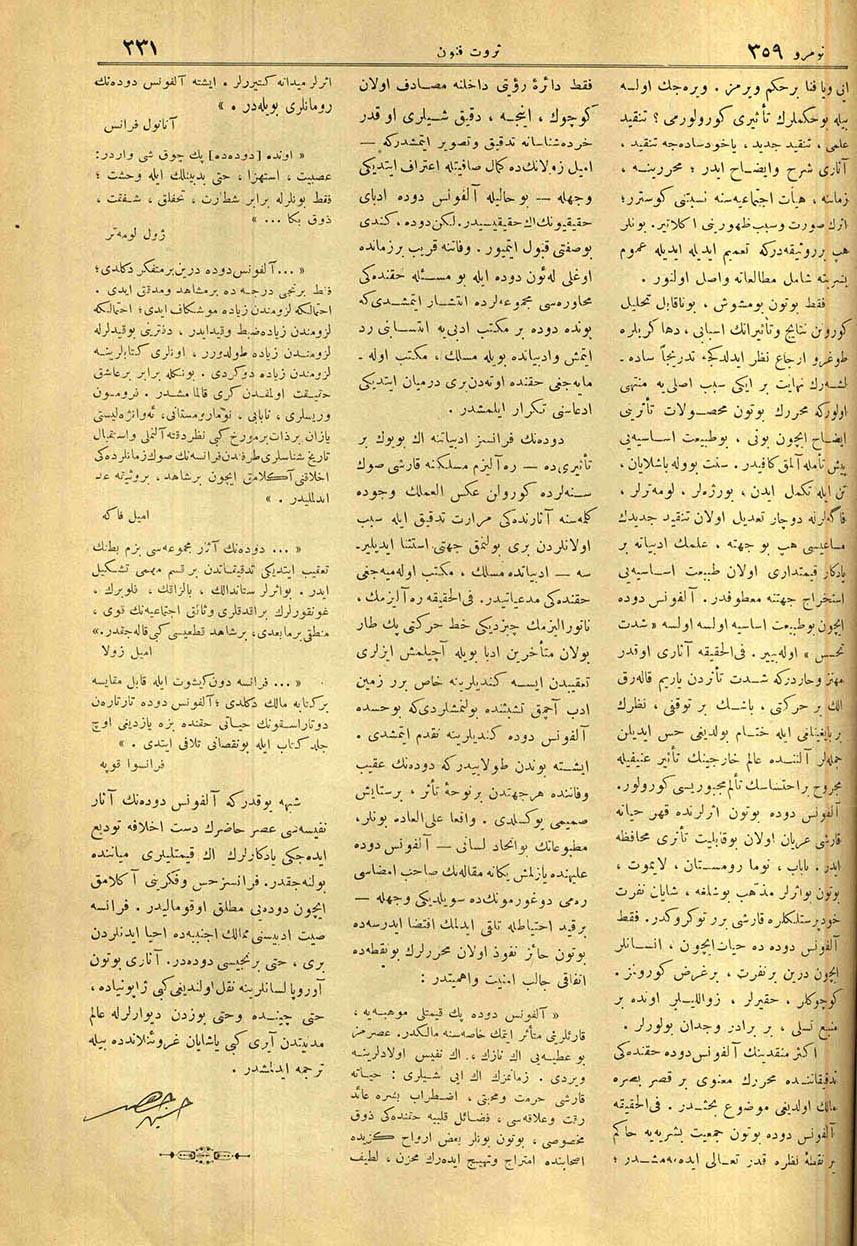 نومرو ٣٥٩
ثروت فنون
٣٣١
ایی ویا فنا بر حكم ویرمز . ویره‌جك اولسه
بیله بو حكملرك تأثیری كورولورمی ؟ تنقید
علمی ، تنقید جدید ، یاخود ساده‌جه تنقید ،
آثاری شرح و ایضاح ایدر ؛ محررینه ،
زماننه ، هیأت اجتماعیه‌سنه نسبتنی كوسترر ؛
اثرك صورت و سبب ظهورینی اكلاتیر . بونلر
هپ بر وثیقه‌دركه تعمیم ایدیله ایدیله عموم
بشریته شامل مطالعاته واصل اولنور .
فقط بوتون بومشوش ، بو ناقابل تحلیل
كورونن نتایج و تأثیراتك اسبابی ، دها كریلره
طوغرو ارجاع نظر ایدلدكجه ، تدریجاً ساده‌ -
لشه‌رك نهایت بر ایكی سبب اصلی‌یه منتهی
اولوركه محررك بوتون محصولات تأثرینی
ایضاح ایچون بونی ، بو طبیعت اساسیه‌یی
پیش تأمله آلمق كافیدر . سنت بووله باشلایان ،
تن ایله تكمل ایدن ، بورژه‌لر ، لومه‌ترلر ،
فاگه‌لرله دوچار تعدیل اولان تنقید جدیدك
مساعیسی هپ بو جهته ، علمك ادبیاته بر
یادكار قیمتداری اولان طبیعت اساسیه‌یی
استخراج جهتنه معطوفدر . آلفونس دوده
ایچون بو طبیعت اساسیه اولسه اولسه « شدت
تحسس » اوله‌بیلیر . فی‌الحقیقه آثاری اوقدر
مهتز و جاردركه شدت تأثردن یاریم قاله‌رق
الك بر حركتی ، باشك بر توقفی ، نظرك
بر بایغینلغی ایله ختام بولدیغی حس ایدیلن
جمله‌لر آلتنده عالم خارجینك تأثیر عنیفیله
مجروح بر احتساسك تألم مجبوریسی كورولور .
آلفونس دوده بوتون اثرلرنده قهر حیاته
قارشی عریان اولان بو قابلیت تأثری محافظه
ایدر . ناباب ، نوما رومستان ، لایموت ،
بوتون بو اثرلر مذهب بوشلغه ، شایان نفرت
خودپرستلكلره قارشی برر توكروكدر . فقط
آلفونس دوده ده حیات ایچون ، انسانلر
ایچون درین بر نفرت ، بر غرض كورونمز .
كوچوكلر ، حقیرلر ، زواللیلر اونده بر
منبع تسلی ، بر برادر وجدان بولورلر .
اكثر منقدینك آلفونس دوده حقنده‌كی
تدقیقاتنده محررك معنوی بر قصر بصره
مالك اولدیغی موضوع بحثدر . فی‌الحقیقه
آلفونس دوده بوتون جمعیت بشریه‌یه حاكم
بر نقطهٔ نظره قدر تعالی ایده‌مه‌مشدر ؛
فقط دائرهٔ رؤیتی داخلنه مصادف اولان
كوچوك ، اینجه ، دقیق شیلری او قدر
خرده‌شناسانه تدقیق و تصویر ایتمشدركه —
امیل زولانك‌ده كمال صافیتله اعتراف ایتدیكی
وجهله — بو حالیله آلفونس دوده ادبای
حقیقیونك اك حقیقیسیدر . لكن دوده ، كندی
بو صفتی قبول ایتمیور . وفاتنه قریب بر زمانده
اوغلی له‌ئون دوده ایله بو مسئله حقنده‌كی
محاوره‌سی مجموعه‌لرده انتشار ایتمشدی‌كه
بونده دوده بر مكتب ادبی‌یه انتسابنی رد
ایتمش و ادبیاتده بویله مسلك ، مكتب اوله‌ -
مایه‌جغی حقنده اوته‌دن‌بری درمیان ایتدیكی
ادعاسنی تكرار ایلمشدر .
دوده‌نك فرانسز ادبیاتنه اك بویوك بر
تأثیری ده — ره‌آلیزم مسلكنه قارشی صوك
سنه‌لرده كورولن عكس العملك وجوده
كلمه‌سنه آثارنده‌كی مرارت تدقیق ایله سبب
اولانلردن بری بولنمق جهتی استثنا ایدیلیر -
سه — ادبیاتده مسلك ، مكتب اوله‌میه‌جغی
حقنده‌كی مدعیاتیدر . فی‌الحقیقه ره‌آلیزمك ،
ناتورالیزمك چیزدیكی خط حركتی پك طار
بولان متأخرین ادبا بویله آچیلمش ایزلری
تعقیبدن ایسه كندیلرینه خاص برر زمین
ادب آچمق تشبثنده بولنمشلردی‌كه بو حسده
آلفونس دوده كندیلرینه تقدم ایتمشدی .
ایشته بوندن طولاییدركه دوده‌نك عقیب
وفاتنده هر جهتدن بر نوحهٔ تأثر ، بر ستایش
صمیمی یوكسلدی . واقعا علی‌العاده بونلر ،
مطبوعاتك بو اتحاد لسانی — آلفونس دوده
علیهنده یازلمش یكانه مقاله‌نك صاحب امضاسی
ره‌می دوغورمونك‌ده سویلدیكی وجهله —
بر قید احتیاطله تلقی ایدلمك اقتضا ایدرسه‌ده
بوتون حائز نفوذ اولان محررلرك بو نقطه‌ده
اتفاقی جالب امنیت و اهمیتدر :
« آلفونس دوده پك قیمتلی موهبه‌یه ،
قارئلرینی متأثر ایتمك خاصه‌سنه مالكدر . عصرمز
بو عطیه‌یی اك نازك ، اك نفیس اولادلرینه
ویردی . زمانمزك اك ایی شیلری : حیاته
قارشی حرمت و محبتی ، اضطراب بشره عائد
رقت و علاقه‌سی ، فضائل قلبیه حقنده‌كی ذوق
مخصوصی ، بوتون بونلر بعض ارواح كزیده
اصحابنده امتزاج و تهییج ایده‌رك محزن ، لطیف
اثرلر میدانه كتیررلر . ایشته آلفونس دوده‌نك
رومانلری بویله‌در . »
آناتول فرانس
« اونده [دوده‌ده] پك چوق شی واردر :
عصبیت ، استهزا ، حتی بدبینلك ایله وحشت ؛
فقط بونلرله برابر شطارت ، تحفلق ، شفقت ،
ذوق بكا ... »
ژول لومه‌تر
« ... آلفونس دوده درین بر متفكر دكلدی ؛
فقط برنجی درجه ده بر مشاهد و مدقق ایدی .
احتمالكه لزومندن زیاده موشكاف ایدی ؛ احتمالكه
لزومندن زیاده ضبط و قید ایدر ، دفترینی بو قیدلرله
لزومندن زیاده طولدورر ، اونلری كتابلرینه
لزومندن زیاده دوكردی . بونكله برابر بر عاشق
حقیقت اولمقدن كری قالمامشدر . فرومون
وریسلری ، نابابی ، نوما رومستانی ، ئه‌وانژه‌لیستی
یازان بر ذات بر مورخ كبی نظر دقته آلنملی و استقبال
تاریخ‌شناسلری طرفندن فرانسه‌نك صوك زمانلرده‌كی
اخلاقنی آكلامق ایچون بر شاهد ، بر وثیقه عد
ایدلملیدر . »
امیل فاگه
« ... دوده‌نك آثار مجموعه‌سی بزم بطنك
تعقیب ایتدیكی تدقیقاتدن بر قسم مهمی تشكیل
ایدر . بو اثرلر ستاندالك ، بالزاقك ، فلوبرك ،
غونقورلرك براقدقلری وثائق اجتماعیه‌نك قوی ،
منطقی بر مابعدی ، بر شاهد قطعیسی كبی قاله‌جقدر . »
امیل زولا
« ... فرانسه دون كیشوت ایله قابل مقایسه
بر كتابه مالك دكلدی ؛ آلفونس دوده تارتارەن
دوتاراسقونك حیاتی حقنده بزه یازدیغی اوچ
جلد كتاب ایله بو نقصانی تلافی ایتدی . »
فرانسوا قوپه
شبهه یوقدركه آلفونس دوده‌نك آثار
نفیسه‌سی عصر حاضرك دست اخلافه تودیع
ایده‌جكی یادكارلرك اك قیمتلیلری میاننده
بولنه‌جقدر . فرانسز حس و فكرینی آكلامق
ایچون دوده‌یی مطلق اوقومالیدر . فرانسه
صیت ادبیسنی ممالك اجنبیه‌ده احیا ایدنلردن
بری ، حتی برنجیسی دوده‌در . آثاری بوتون
آوروپا لسانلرینه نقل اولندیغی كبی ژاپونیاده ،
حتی چینده و حتی بوزدن دیوارلرله عالم
مدنیتدن آیری كبی یاشایان غروئنلانده بیله
ترجمه ایدلمشدر .